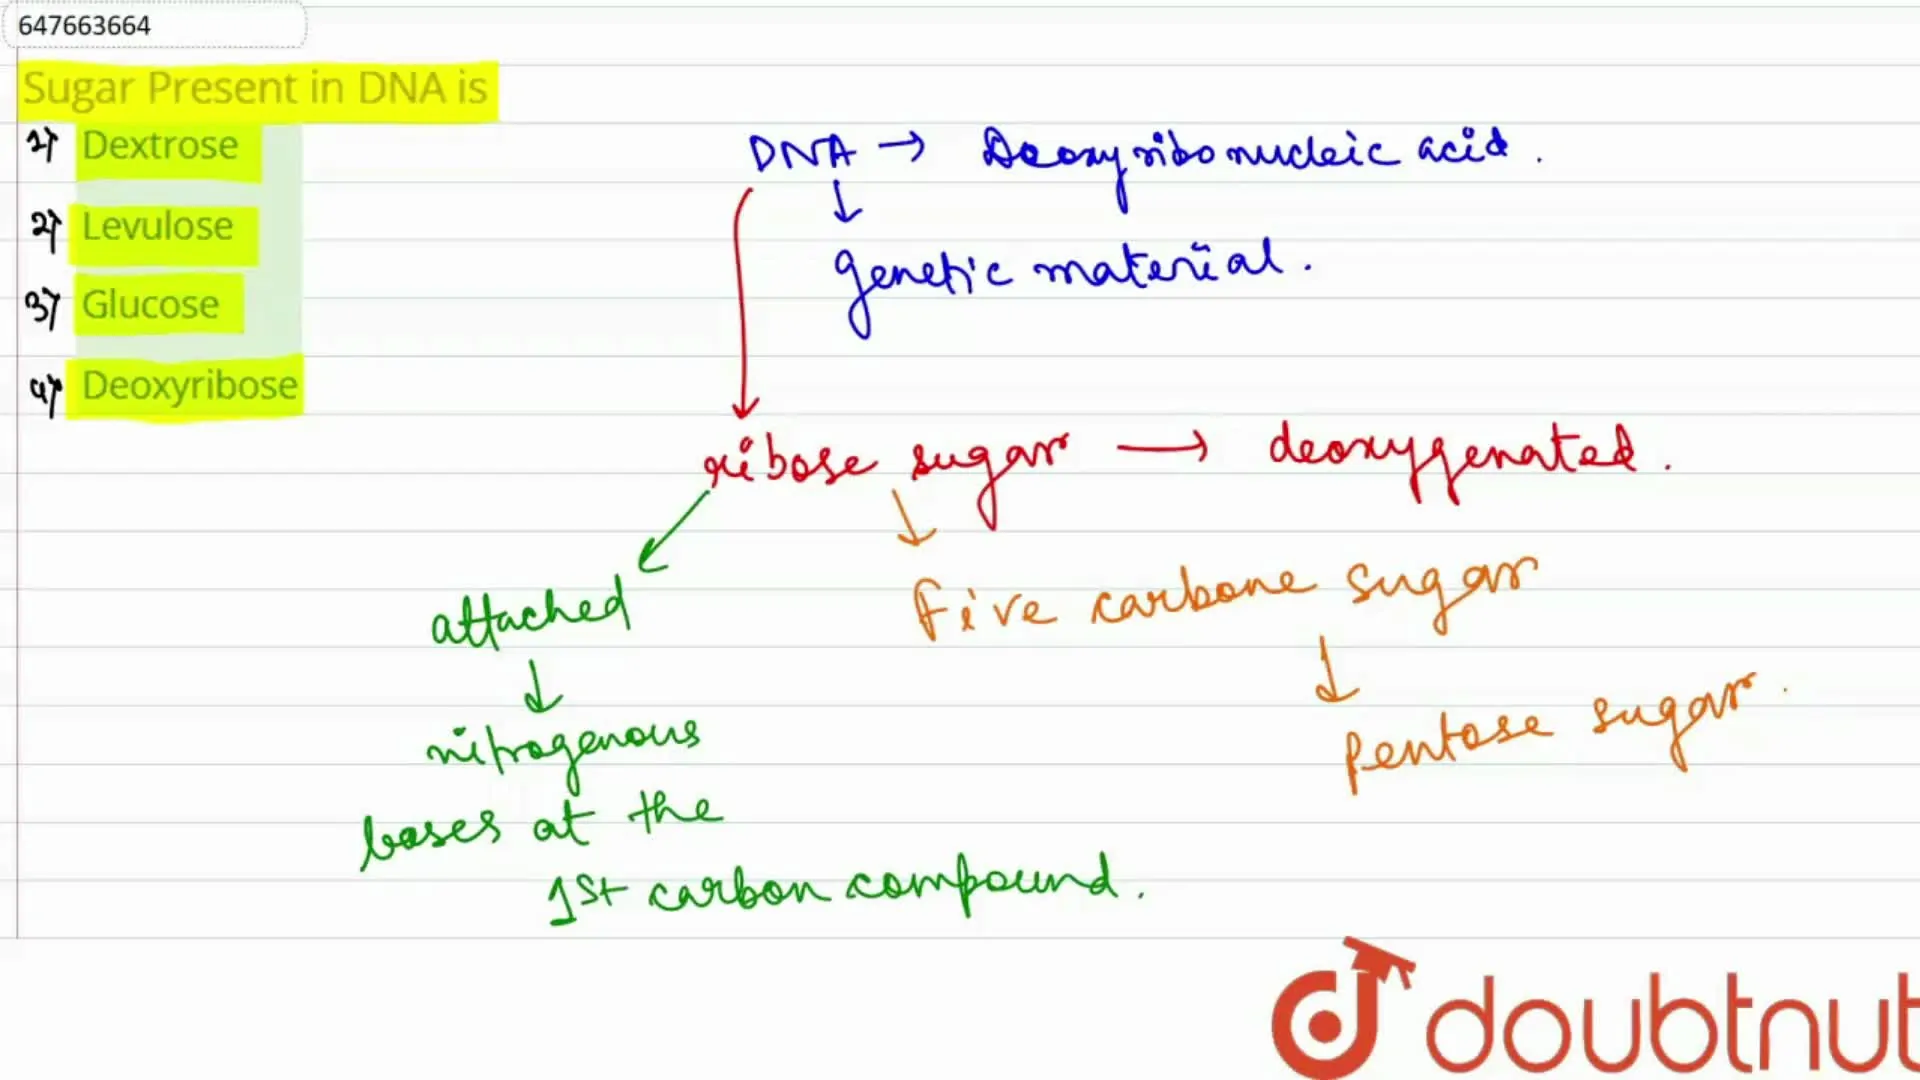 647663664
Sugar Present in DNA is
1) Dextrose
2) Levulose
3) Glucose
4) Deoxyribose
DNA → Deoxyribonucleic acid.
↓
genetic material.
ribose sugar → deoxygenated.
attached
↓
nitrogenous
bases at the
1st carbon compound.
Five carbone sugar
↓
Pentose sugar.
doubtnut